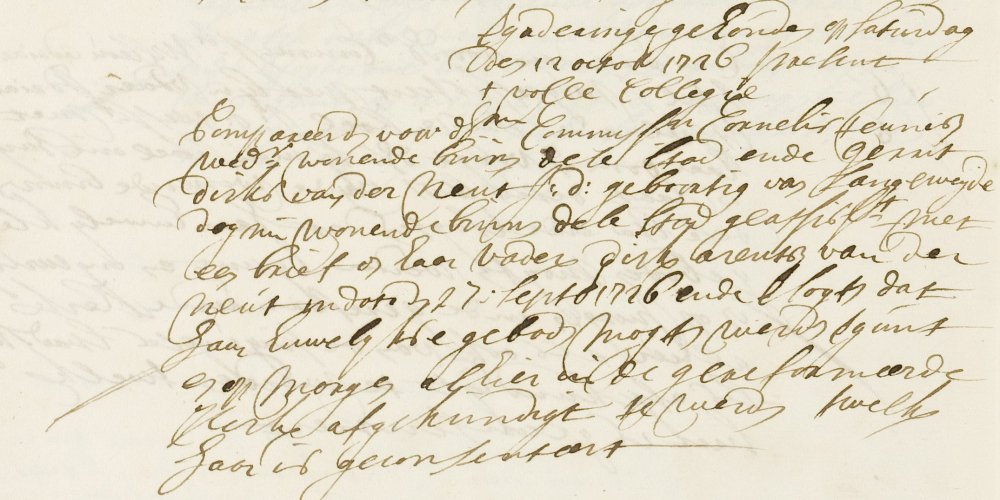 Vergaderinge gehouden op Saturdag
den 12 octob 1726 present
t volle Collegie
Compareerde voor d Hrn Commissn Cornelis teunis
wedr wonende binnen dese stad ende gerrit
dirks van der Neut j: d: geboortig van Langeweyde
dog nu wonende binnen dese stad geassist met
een brief van haar vader dirk arents van der
Neut in dato den 27: Septb 1726 ende versogten dat
haar huwelyksse geboden mogten werden ingeint
en op morgen alhier in de gereformeerde
kerke afgekundigt te werden twelk
haar is geconsenteert